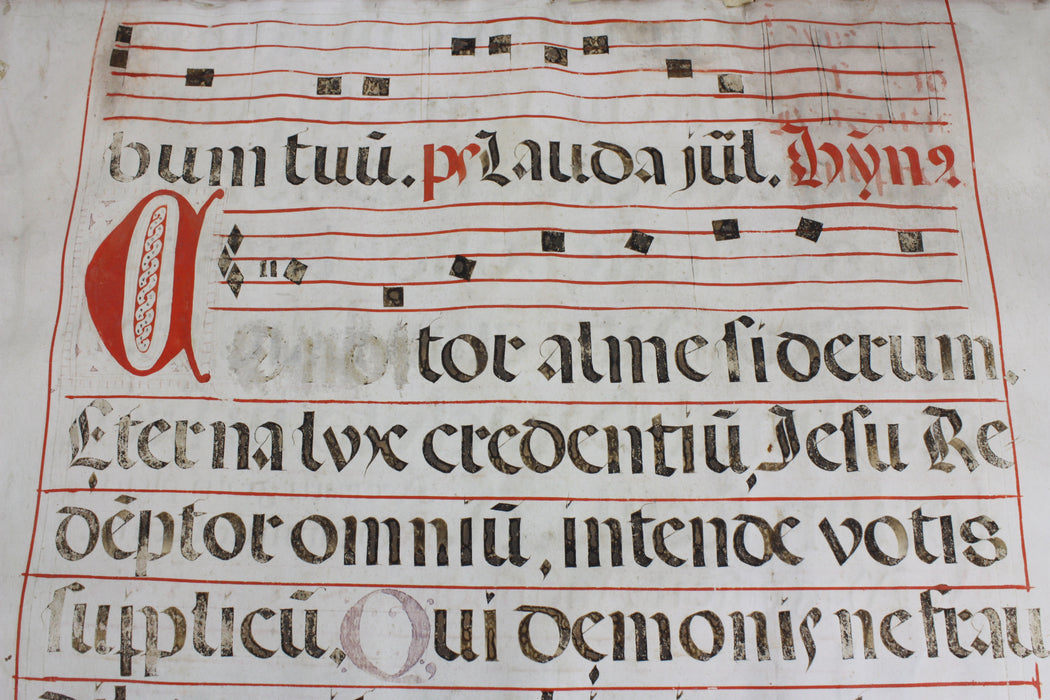 bum tuū. ps Lauda jūl. Hȳn9
C onditor alme siderum,
Ęterna lvx credentiū, Jesu Re
dēptor omniū, intende votis
supplicū, Qui dęmonis ne frau